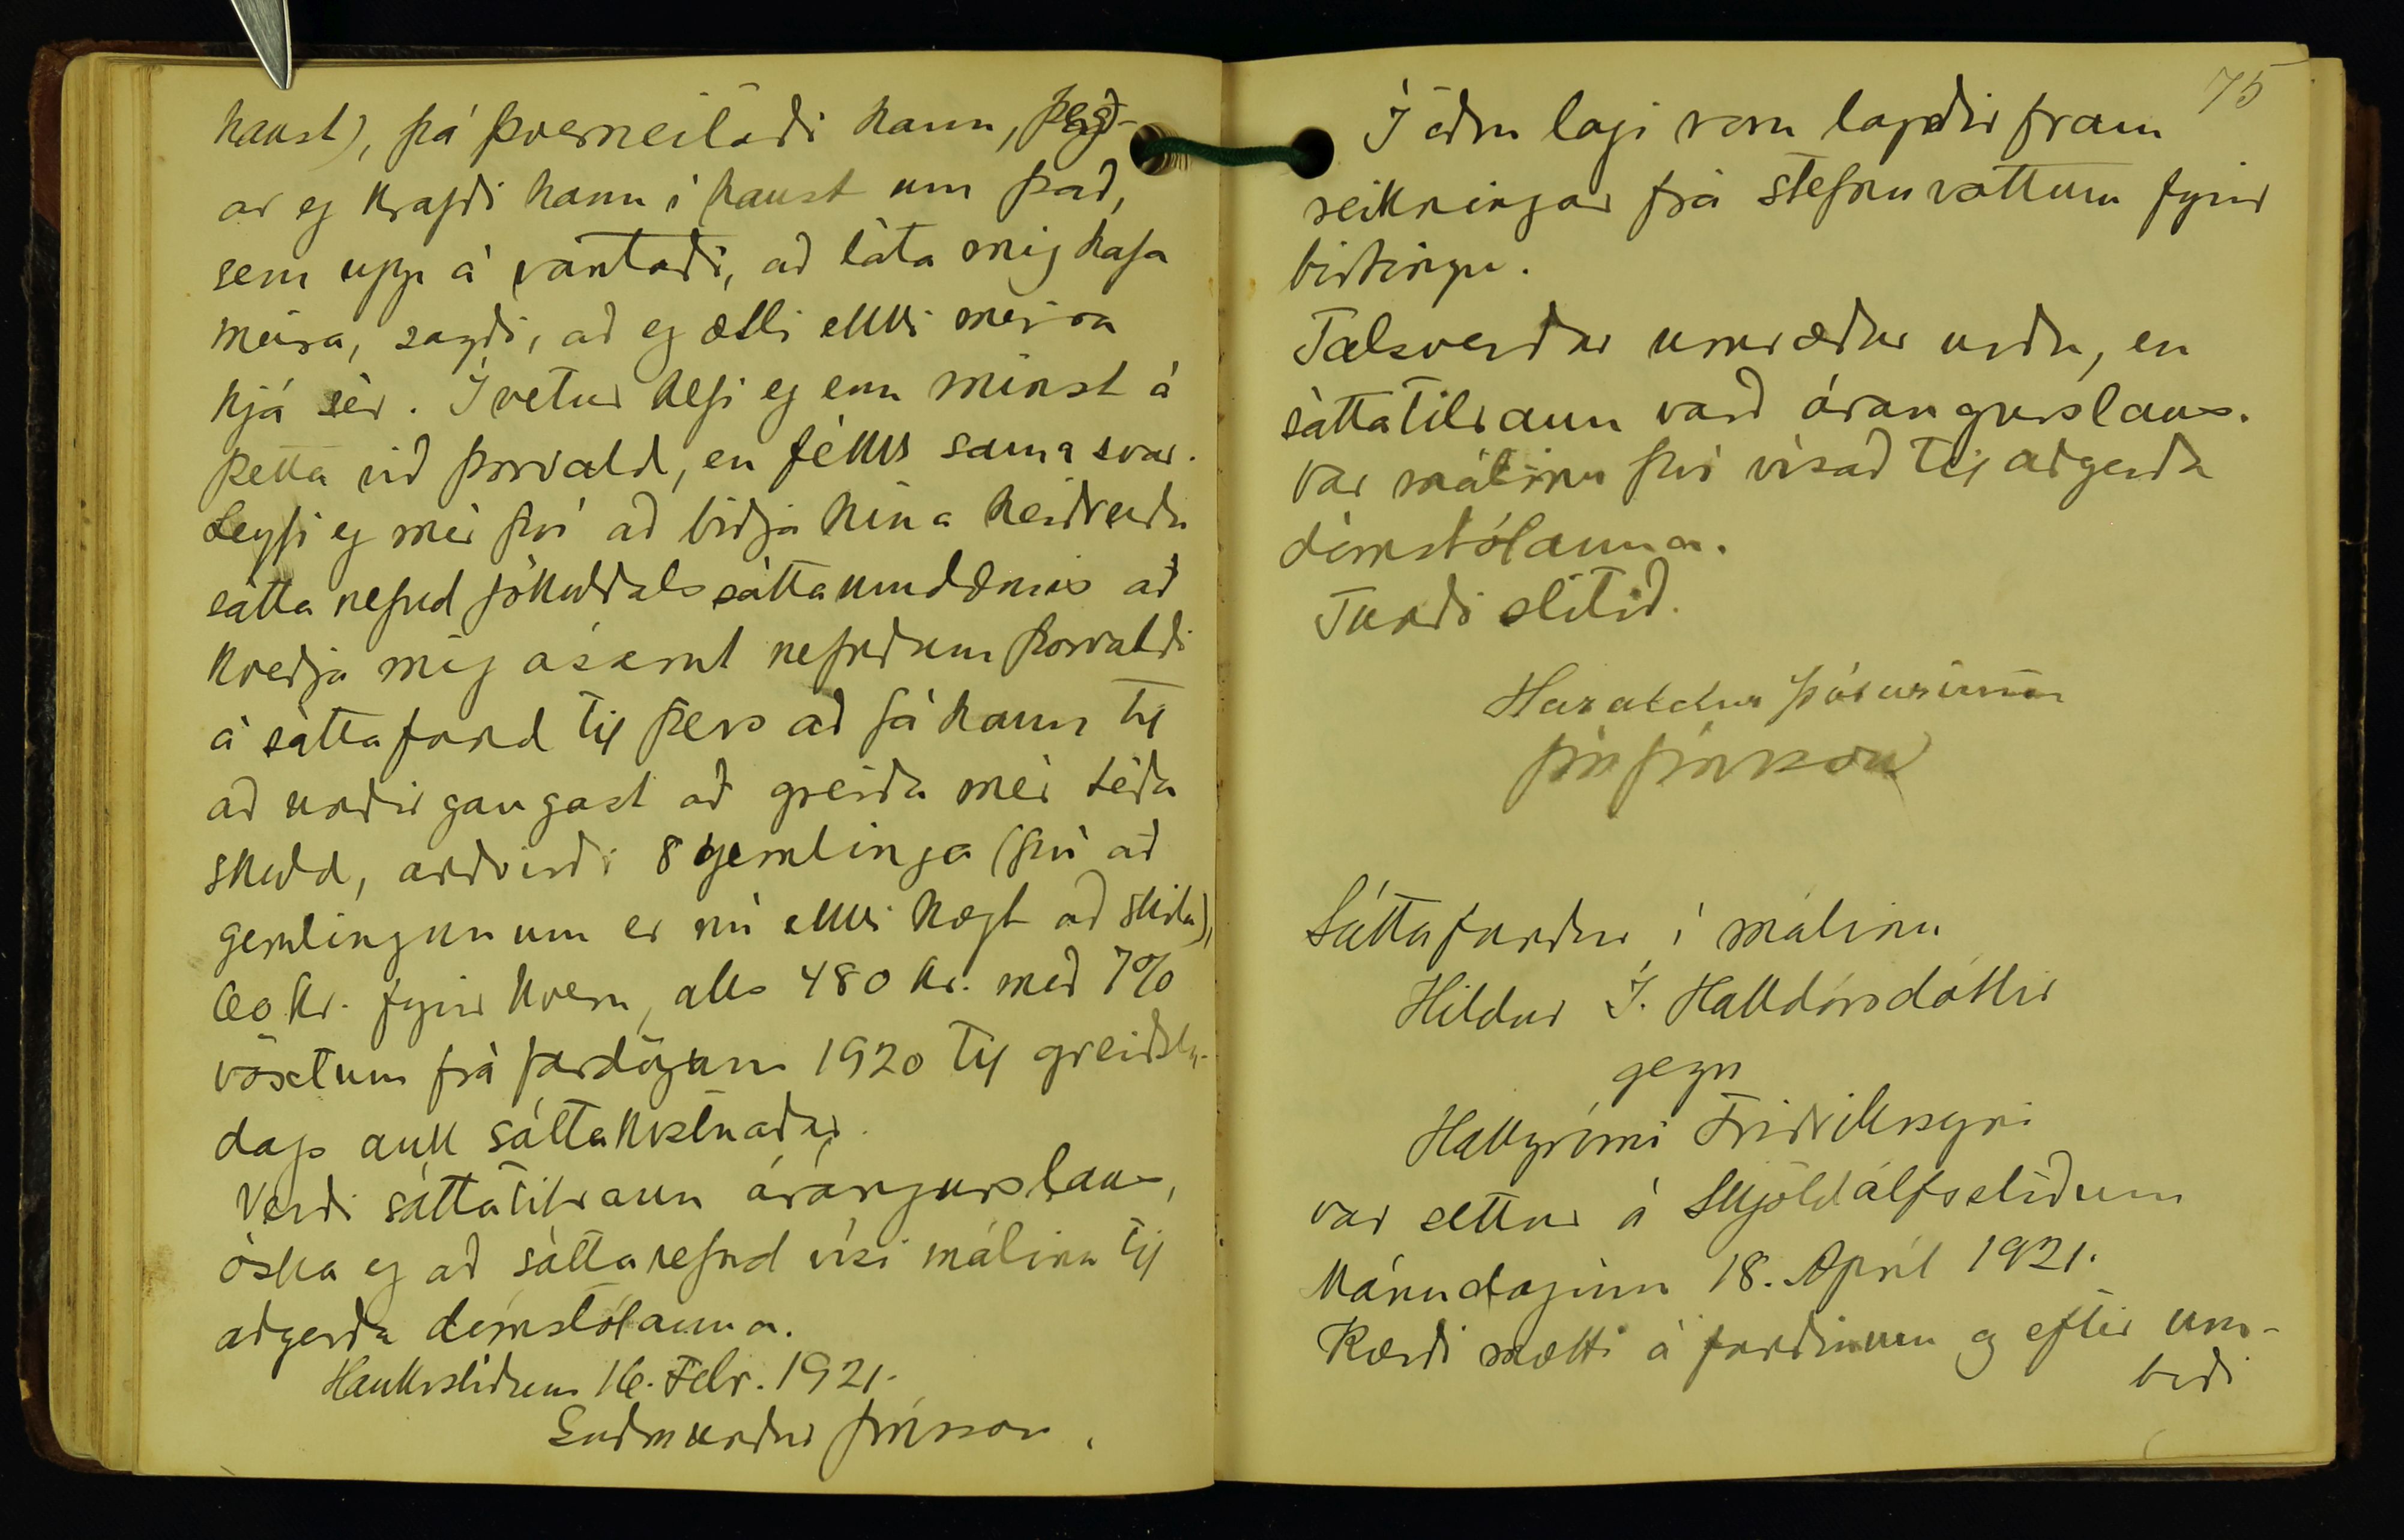 haust), þá þverneitaði hann, þeg-
ar eg krafði hann í haust um það,
sem upp á vantaði, að láta mig hafa
meira, sagði, að eg ætti ekki meira
hjá sér. Í vetur hefi eg enn minst á
þetta við Þorvald, en fékk sama svar.
Leyfi eg mér því að biðja hina heiðruðu
sátta nefnd Jökuldals sáttaumdæmis að
kveðja mig ásamt nefndum Þorvaldi
á sáttafund til þess að fá hann til
að undirgangast að greiða mér téða
skuld, andvirði 8 gemlinga (því að
gemlingunum er nú ekki hægt að skila),
60 kr. fyrir hvern, alls 480 kr. með 7%
vöxtum frá fardögum 1920 til greiðslu-
dags auk sáttakostnaðar.
Verði sáttatilraun árangurslaus,
óska eg að sáttanefnd vísi málinu til
aðgerða dómstólanna.
Hauksstöðum 16. Febr. 1921.
Guðmundur Jónsson.
75
Í öðru lagi voru lagðir fram
reikningar frá stefnuvottum fyrir
birtingu.
Talsverðar umræður urðu, en
sáttatilraun varð árangurslaus.
Var málinu því vísað til aðgerða
dómstólanna.
Fundi slitið.
Haraldur Þórarinsson
Jón Jónsson
Sáttafundur í málinu
Hildur J. Halldórsdóttir
gegn
Hallgrími Friðrikssyni
var settur á Skjöldólfsstöðum
Mánudaginn 18. Apríl 1921.
Kærði mætti á fundinum og eftir um-
boði